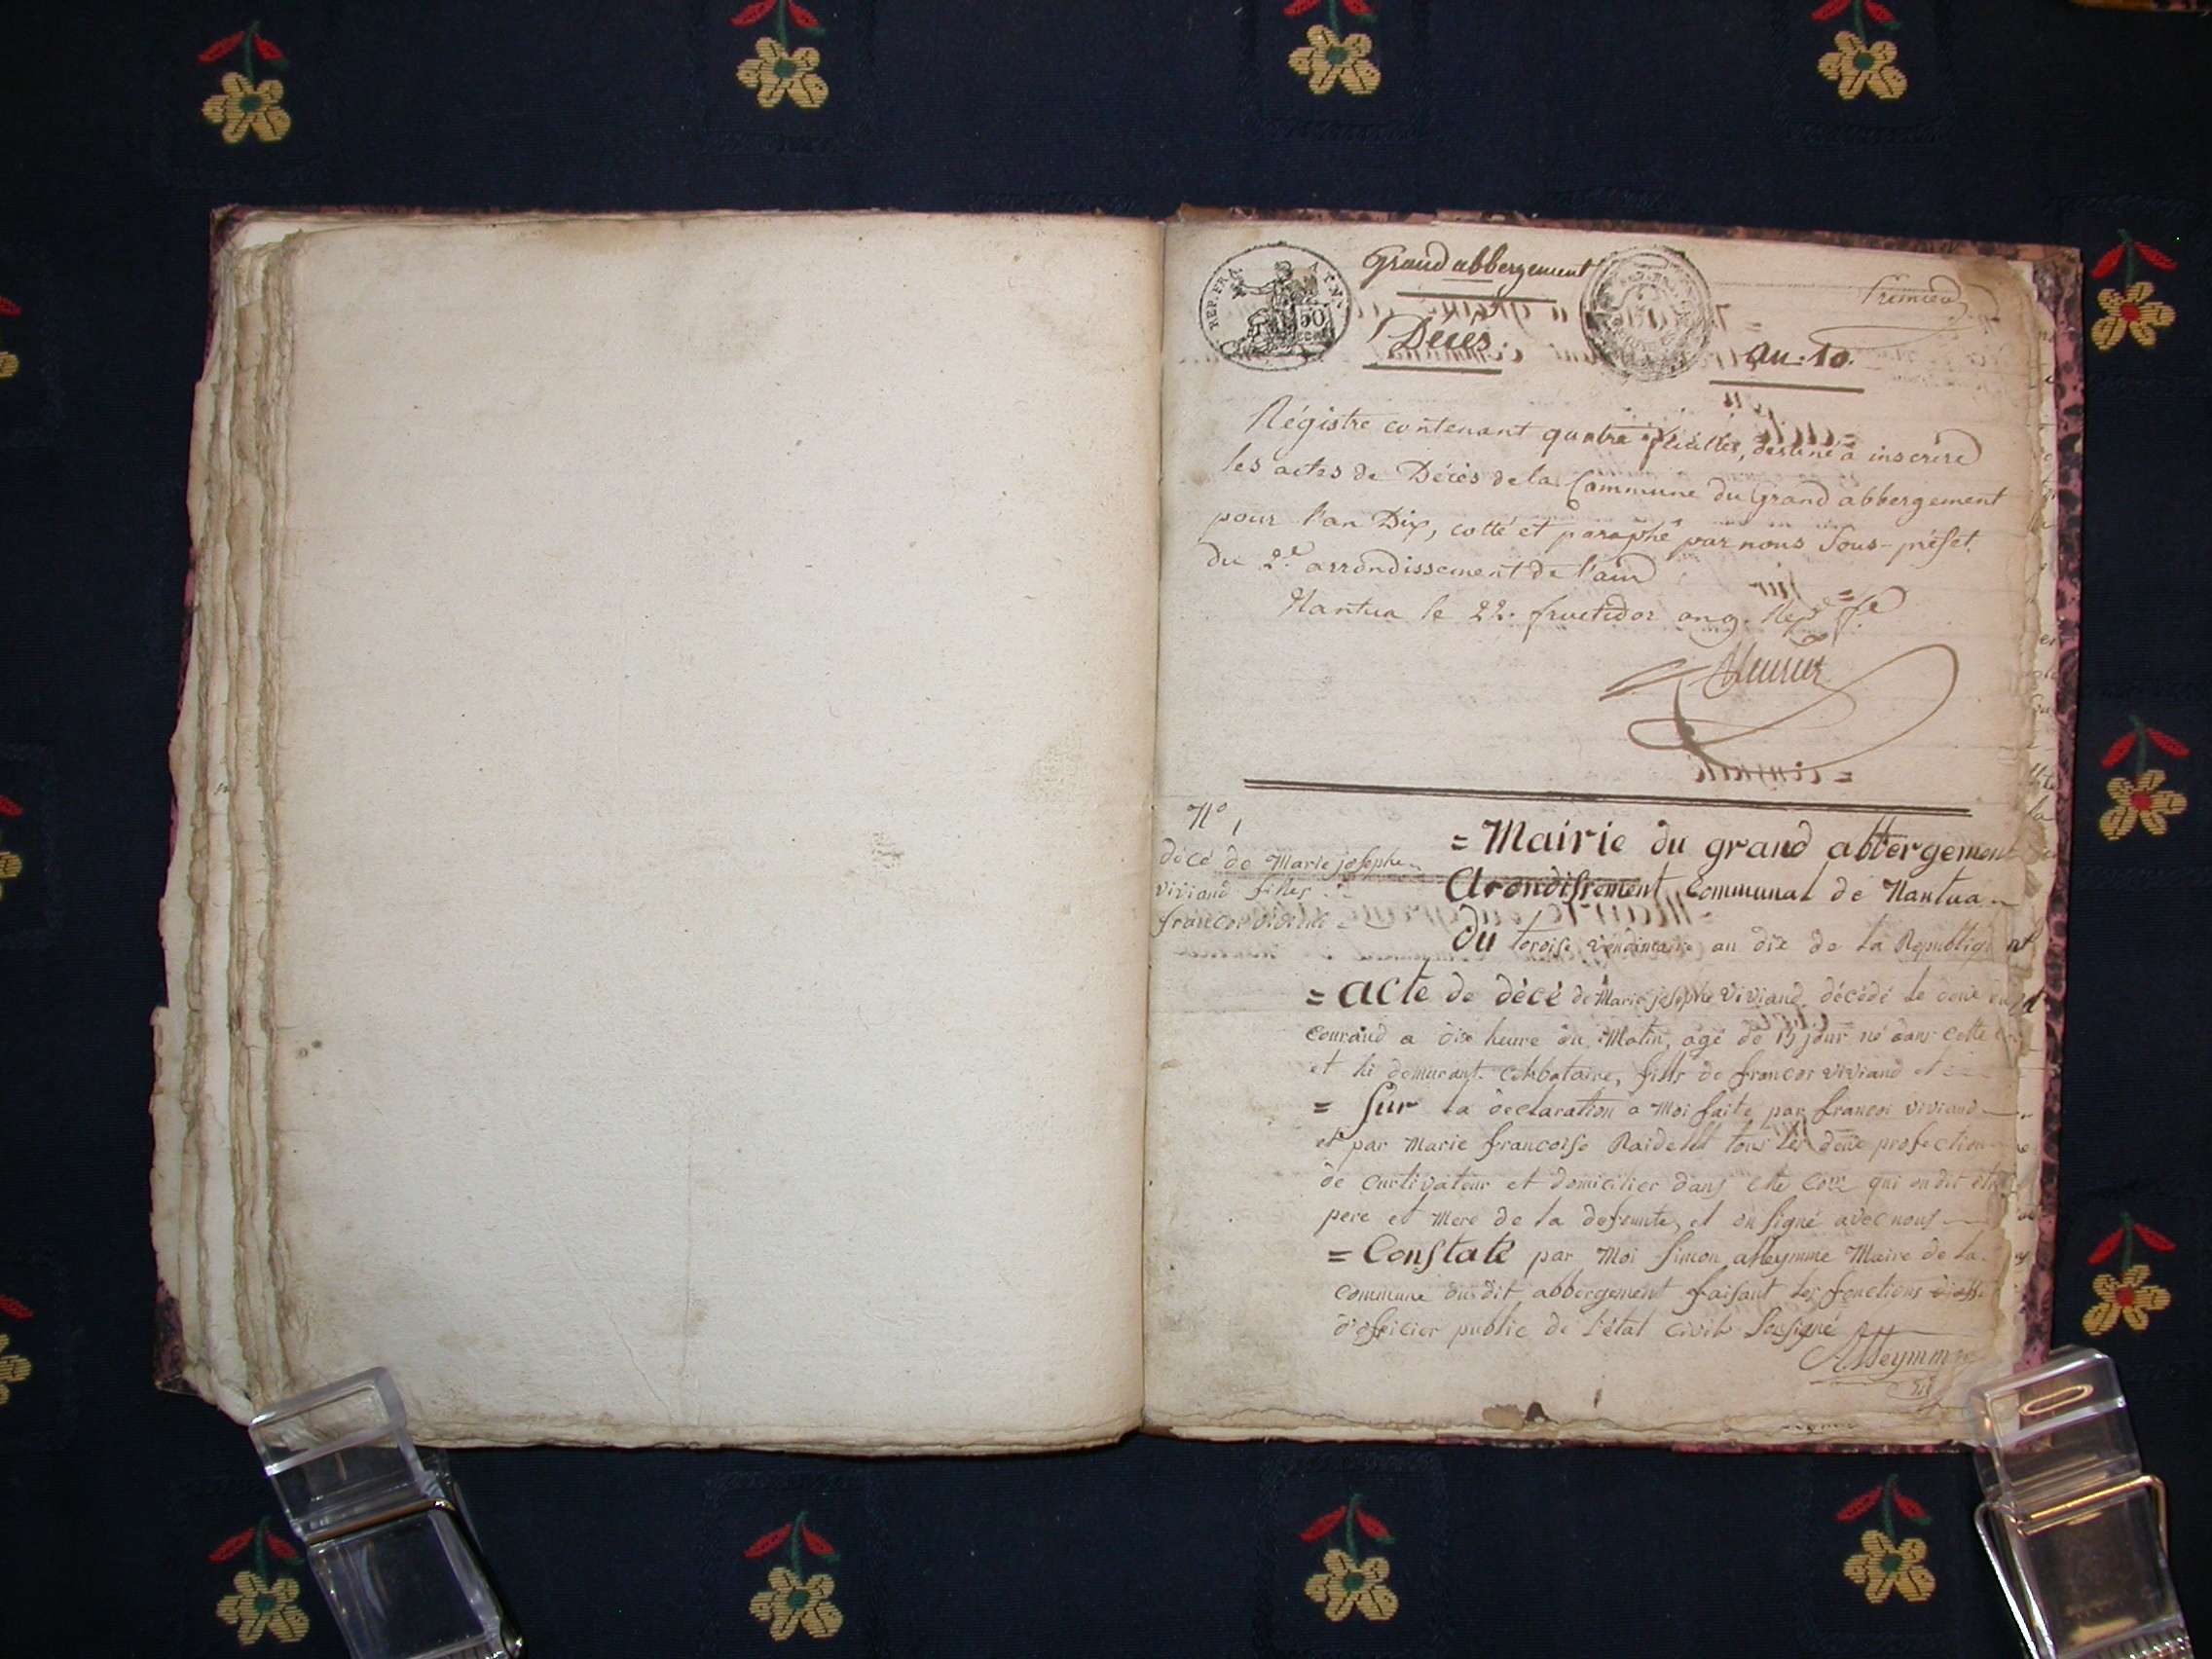 REP. FRA. NAT.
50
Grand abbergement
Premier
Décès.
an. 10.
Régistre contenant quatre feuilles, destiné à inscrire
les actes de Décès de la Commune du Grand abbergement
pour l'an Dix, cotté et paraphé par nous Sous-préfet
du 2e arrondissement de l'ain
Nantua le 22. fructidor an 9.
N° 1
décé de Marie josephe
viviand filles
francoi viviand
= Mairie du grand abbergement
Arondissement Communal de Nantua
Du treoise vendimaire an dix de la Republiq
= acte de décé de Marie josephe viviand décédé le
courand a dix heure du Matin, agé de 15 jour né dans cette
et hi demurant celibataire, fills de francoi viviand et
= Sur la declaration a Moi faite par francoi viviand
et par Marie francoise tous les deux profection
de curtivateur et domicilier dans cete com qui on dit etre
pere et Mere de la defunte, et on signé avec nous
= Constaté par Moi Simon alleymme Maire de la
commune du dit abbergement faisant les fonctions
d'officier public de l'état civil Sousigné
Alleymme